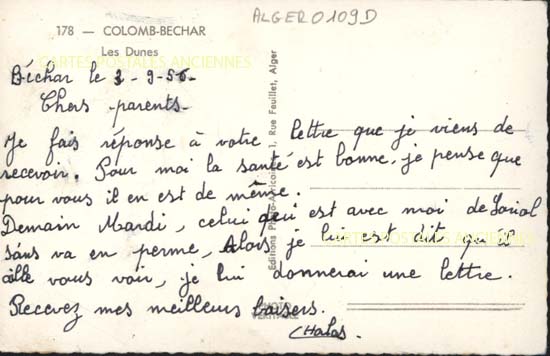 ALGER0109D
178 — COLOMB-BECHAR
Les Dunes
CARTES POSTALES ANCIENNES
Béchar le 3-9-56-
Chers parents-
Je fais réponse à votre lettre que je viens de
recevoir. Pour moi la santé est bonne, je pense que
pour vous il en est de même.
Demain Mardi, celui qui est avec moi de
sáns va en perme, Alors je lui est dit qu'il
aille vous voir, je lui donnerai une lettre.
Recevez mes meilleurs baisers.
Editions Photo-Africaines - 1, Rue Feuillet, Alger
CARTES POSTALES ANCIENNES
PHOTO
VERITABLE